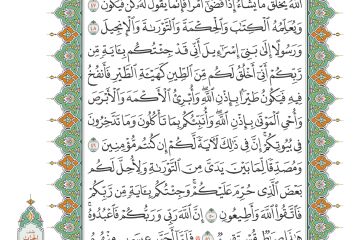 ٱللَّهُ يَخْلُقُ مَا يَشَآءُ إِذَا قَضَىٰٓ أَمْرًا فَإِنَّمَا يَقُولُ لَهُۥ كُن فَيَكُونُ ٤٧
وَيُعَلِّمُهُ ٱلْكِتَٰبَ وَٱلْحِكْمَةَ وَٱلتَّوْرَىٰةَ وَٱلْإِنجِيلَ ٤٨
وَرَسُولًا إِلَىٰ بَنِىٓ إِسْرَٰٓءِيلَ أَنِّى قَدْ جِئْتُكُم بِـَٔايَةٍ مِّن
رَّبِّكُمْ أَنِّىٓ أَخْلُقُ لَكُم مِّنَ ٱلطِّينِ كَهَيْـَٔةِ ٱلطَّيْرِ فَأَنفُخُ
فِيهِ فَيَكُونُ طَيْرًۢا بِإِذْنِ ٱللَّهِ وَأُبْرِئُ ٱلْأَكْمَهَ وَٱلْأَبْرَصَ
وَأُحْىِ ٱلْمَوْتَىٰ بِإِذْنِ ٱللَّهِ وَأُنَبِّئُكُم بِمَا تَأْكُلُونَ وَمَا تَدَّخِرُونَ
فِى بُيُوتِكُمْ إِنَّ فِى ذَٰلِكَ لَـَٔايَةً لَّكُمْ إِن كُنتُم مُّؤْمِنِينَ ٤٩
وَمُصَدِّقًا لِّمَا بَيْنَ يَدَىَّ مِنَ ٱلتَّوْرَىٰةِ وَلِأُحِلَّ لَكُم
بَعْضَ ٱلَّذِى حُرِّمَ عَلَيْكُمْ وَجِئْتُكُم بِـَٔايَةٍ مِّن رَّبِّكُمْ
فَٱتَّقُوا۟ ٱللَّهَ وَأَطِيعُونِ ٥٠ إِنَّ ٱللَّهَ رَبِّى وَرَبُّكُمْ فَٱعْبُدُوهُ
هَٰذَا صِرَٰطٌ مُّسْتَقِيمٌ ٥١ فَلَمَّآ أَحَسَّ عِيسَىٰ مِنْهُمُ